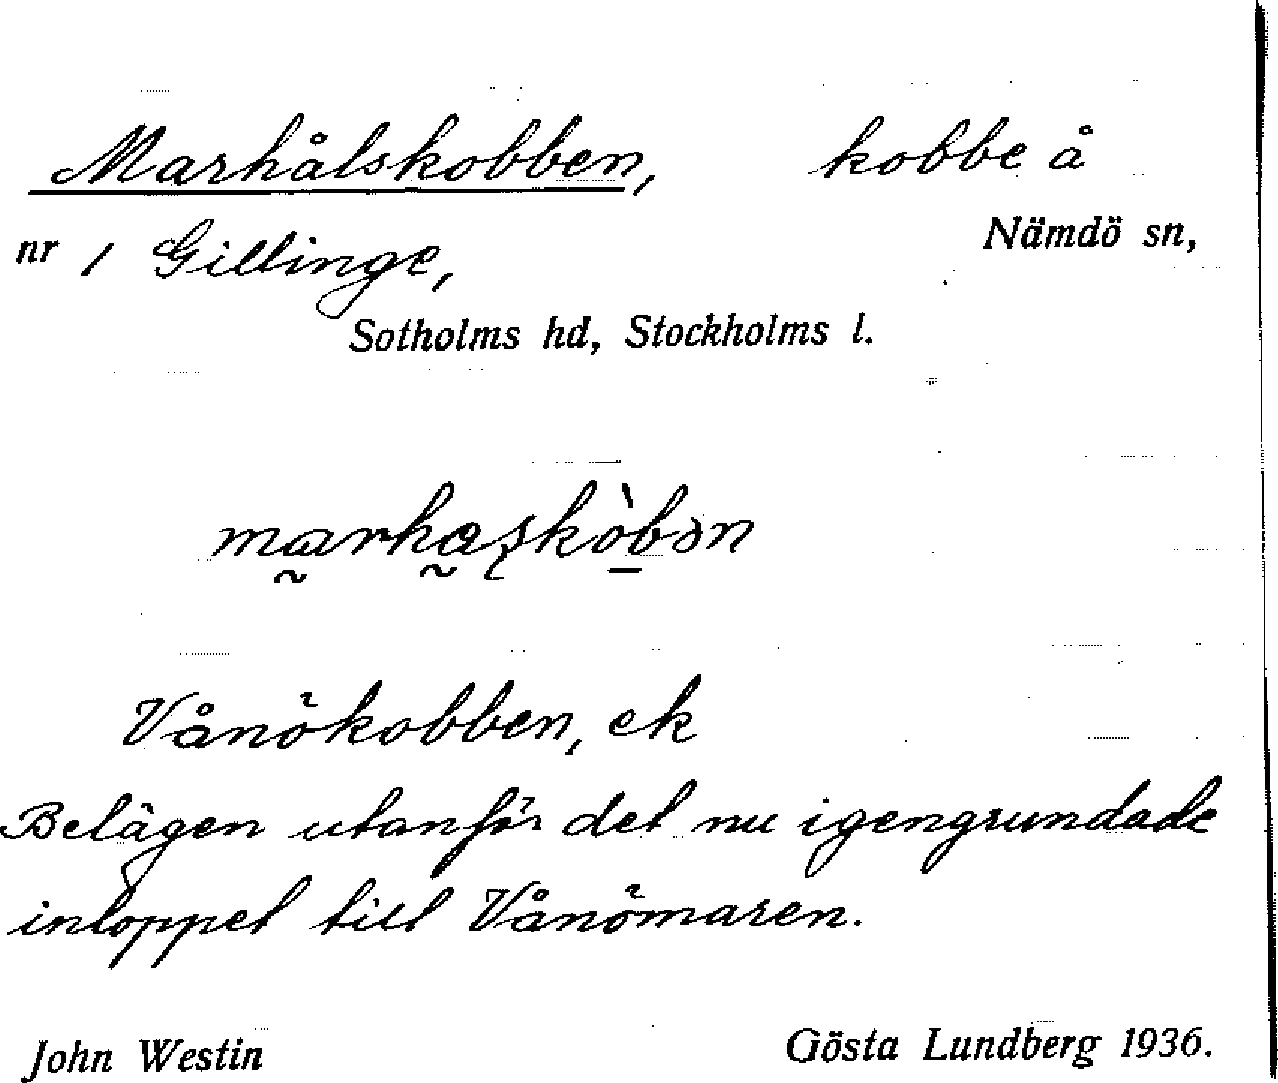 Marhålskobben, kobbe å
nr 1 Gillinge, Nämdö sn,
Sotholms hd, Stockholms l.
marhaskòbən
Vånökobben, ek
Belägen utanför det nu igengrundade
inloppet till Vånömaren.
John Westin Gösta Lundberg 1936.